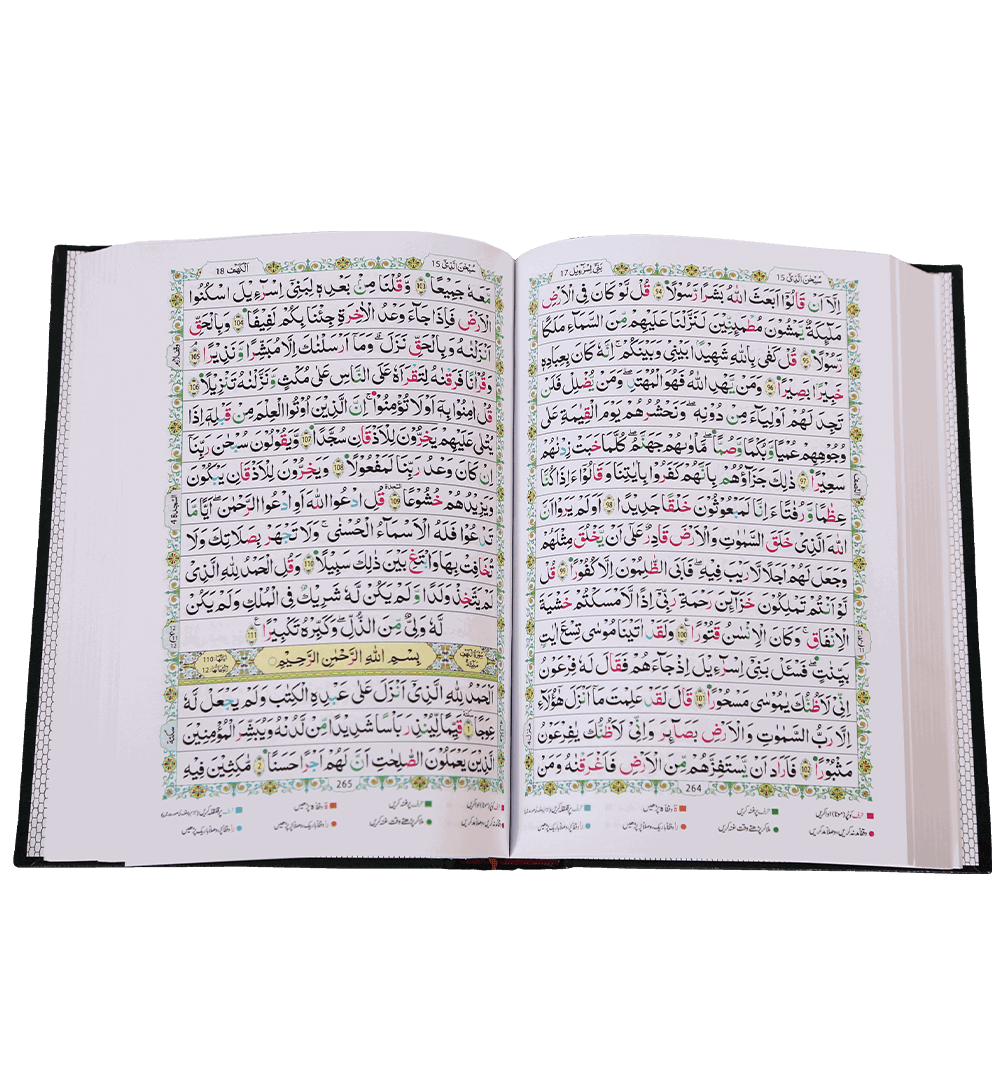 سُبْحٰنَ الَّذِیْۤ 15
بَنِیْۤ اِسْرَآءِیْل 17
اِلَّاۤ اَنْ قَالُوْۤا اَبَعَثَ اللّٰهُ بَشَرًا رَّسُوْلًا 94 قُلْ لَّوْ كَانَ فِی الْاَرْضِ
مَلٰٓىِٕكَةٌ یَّمْشُوْنَ مُطْمَىِٕنِّیْنَ لَنَزَّلْنَا عَلَیْهِمْ مِّنَ السَّمَآءِ مَلَكًا
رَّسُوْلًا 95 قُلْ كَفٰی بِاللّٰهِ شَهِیْدًۢا بَیْنِیْ وَبَیْنَكُمْ ؕ اِنَّهٗ كَانَ بِعِبَادِهٖ
خَبِیْرًۢا بَصِیْرًا 96 وَمَنْ یَّهْدِ اللّٰهُ فَهُوَ الْمُهْتَدِ ۚ وَمَنْ یُّضْلِلْ فَلَنْ
تَجِدَ لَهُمْ اَوْلِیَآءَ مِنْ دُوْنِهٖ ؕ وَنَحْشُرُهُمْ یَوْمَ الْقِیٰمَةِ عَلٰی
وُجُوْهِهِمْ عُمْیًا وَّبُكْمًا وَّصُمًّا ؕ مَاْوٰىهُمْ جَهَنَّمُ ؕ كُلَّمَا خَبَتْ زِدْنٰهُمْ
سَعِیْرًا 97 ذٰلِكَ جَزَآؤُهُمْ بِاَنَّهُمْ كَفَرُوْا بِاٰیٰتِنَا وَقَالُوْۤا ءَاِذَا كُنَّا
عِظَامًا وَّرُفَاتًا ءَاِنَّا لَمَبْعُوْثُوْنَ خَلْقًا جَدِیْدًا 98 اَوَلَمْ یَرَوْا اَنَّ
اللّٰهَ الَّذِیْ خَلَقَ السَّمٰوٰتِ وَالْاَرْضَ قَادِرٌ عَلٰۤی اَنْ یَّخْلُقَ مِثْلَهُمْ
وَجَعَلَ لَهُمْ اَجَلًا لَّا رَیْبَ فِیْهِ ؕ فَاَبَی الظّٰلِمُوْنَ اِلَّا كُفُوْرًا 99 قُلْ
لَّوْ اَنْتُمْ تَمْلِكُوْنَ خَزَآىِٕنَ رَحْمَةِ رَبِّیْۤ اِذًا لَّاَمْسَكْتُمْ خَشْیَةَ
الْاِنْفَاقِ ؕ وَكَانَ الْاِنْسَانُ قَتُوْرًا 100 وَلَقَدْ اٰتَیْنَا مُوْسٰی تِسْعَ اٰیٰتٍۭ
بَیِّنٰتٍ فَسْـَٔلْ بَنِیْۤ اِسْرَآءِیْلَ اِذْ جَآءَهُمْ فَقَالَ لَهٗ فِرْعَوْنُ
اِنِّیْ لَاَظُنُّكَ یٰمُوْسٰی مَسْحُوْرًا 101 قَالَ لَقَدْ عَلِمْتَ مَاۤ اَنْزَلَ هٰۤؤُلَآءِ
اِلَّا رَبُّ السَّمٰوٰتِ وَالْاَرْضِ بَصَآىِٕرَ ۚ وَاِنِّیْ لَاَظُنُّكَ یٰفِرْعَوْنُ
مَثْبُوْرًا 102 فَاَرَادَ اَنْ یَّسْتَفِزَّهُمْ مِّنَ الْاَرْضِ فَاَغْرَقْنٰهُ وَمَنْ
264
سُبْحٰنَ الَّذِیْۤ 15
اَلْكَهْف 18
مَّعَهٗ جَمِیْعًا 103 وَّقُلْنَا مِنْۢ بَعْدِهٖ لِبَنِیْۤ اِسْرَآءِیْلَ اسْكُنُوا
الْاَرْضَ فَاِذَا جَآءَ وَعْدُ الْاٰخِرَةِ جِئْنَا بِكُمْ لَفِیْفًا 104 وَبِالْحَقِّ
اَنْزَلْنٰهُ وَبِالْحَقِّ نَزَلَ ؕ وَمَاۤ اَرْسَلْنٰكَ اِلَّا مُبَشِّرًا وَّنَذِیْرًا 105
وَقُرْاٰنًا فَرَقْنٰهُ لِتَقْرَاَهٗ عَلَی النَّاسِ عَلٰی مُكْثٍ وَّنَزَّلْنٰهُ تَنْزِیْلًا 106
قُلْ اٰمِنُوْا بِهٖۤ اَوْ لَا تُؤْمِنُوْا ؕ اِنَّ الَّذِیْنَ اُوْتُوا الْعِلْمَ مِنْ قَبْلِهٖۤ اِذَا
یُتْلٰی عَلَیْهِمْ یَخِرُّوْنَ لِلْاَذْقَانِ سُجَّدًا 107 وَّیَقُوْلُوْنَ سُبْحٰنَ رَبِّنَاۤ
اِنْ كَانَ وَعْدُ رَبِّنَا لَمَفْعُوْلًا 108 وَیَخِرُّوْنَ لِلْاَذْقَانِ یَبْكُوْنَ
وَیَزِیْدُهُمْ خُشُوْعًا 109 قُلِ ادْعُوا اللّٰهَ اَوِ ادْعُوا الرَّحْمٰنَ ؕ اَیًّا مَّا
تَدْعُوْا فَلَهُ الْاَسْمَآءُ الْحُسْنٰی ۚ وَلَا تَجْهَرْ بِصَلَاتِكَ وَلَا
تُخَافِتْ بِهَا وَابْتَغِ بَیْنَ ذٰلِكَ سَبِیْلًا 110 وَقُلِ الْحَمْدُ لِلّٰهِ الَّذِیْ
لَمْ یَتَّخِذْ وَلَدًا وَّلَمْ یَكُنْ لَّهٗ شَرِیْكٌ فِی الْمُلْكِ وَلَمْ یَكُنْ
لَّهٗ وَلِیٌّ مِّنَ الذُّلِّ وَكَبِّرْهُ تَكْبِیْرًا 111
بِسْمِ اللّٰهِ الرَّحْمٰنِ الرَّحِیْمِ
اَلْحَمْدُ لِلّٰهِ الَّذِیْۤ اَنْزَلَ عَلٰی عَبْدِهِ الْكِتٰبَ وَلَمْ یَجْعَلْ لَّهٗ
عِوَجًا 1 قَیِّمًا لِّیُنْذِرَ بَاْسًا شَدِیْدًا مِّنْ لَّدُنْهُ وَیُبَشِّرَ الْمُؤْمِنِیْنَ
الَّذِیْنَ یَعْمَلُوْنَ الصّٰلِحٰتِ اَنَّ لَهُمْ اَجْرًا حَسَنًا 2 مَّاكِثِیْنَ فِیْهِ
265